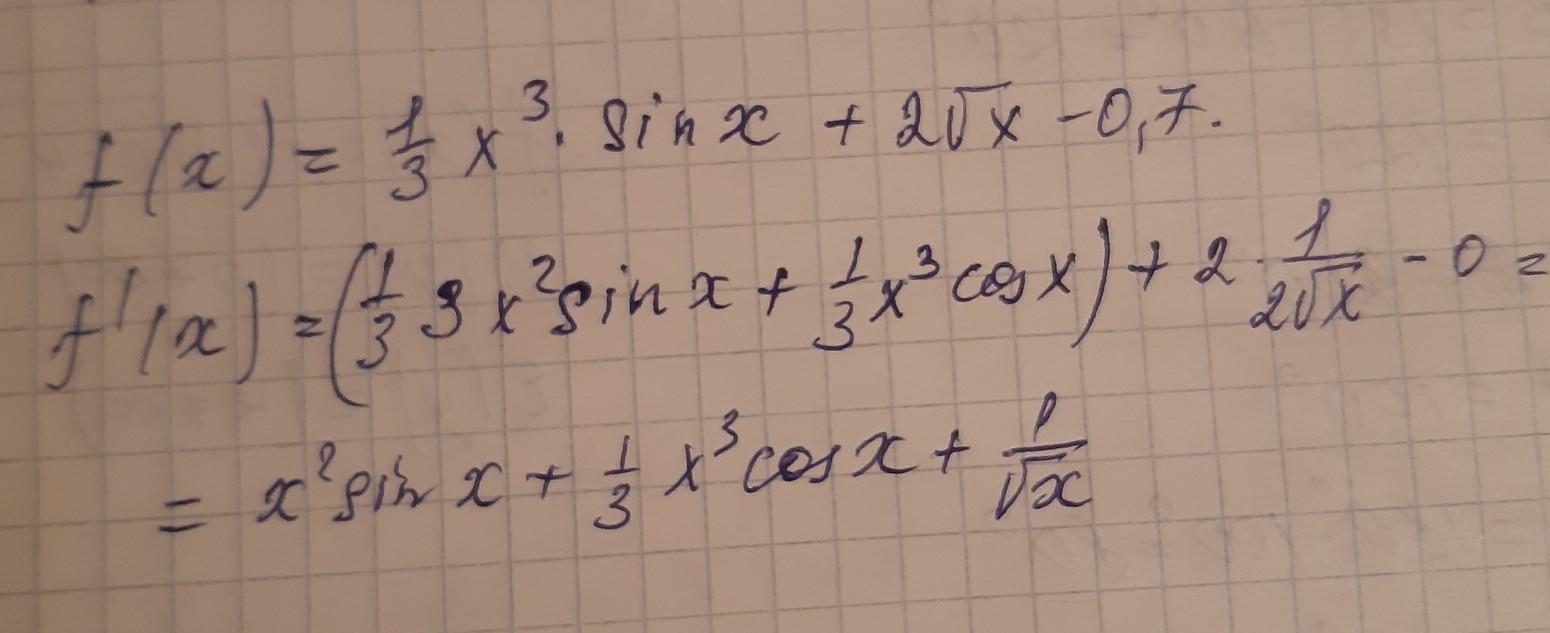 f(x) = 1/3 x³ · sin x + 2√x - 0,7.
f'(x) = (1/3 3x² sin x + 1/3 x³ cos x) + 2 · 1/(2√x) - 0 =
= x² sin x + 1/3 x³ cos x + 1/√x